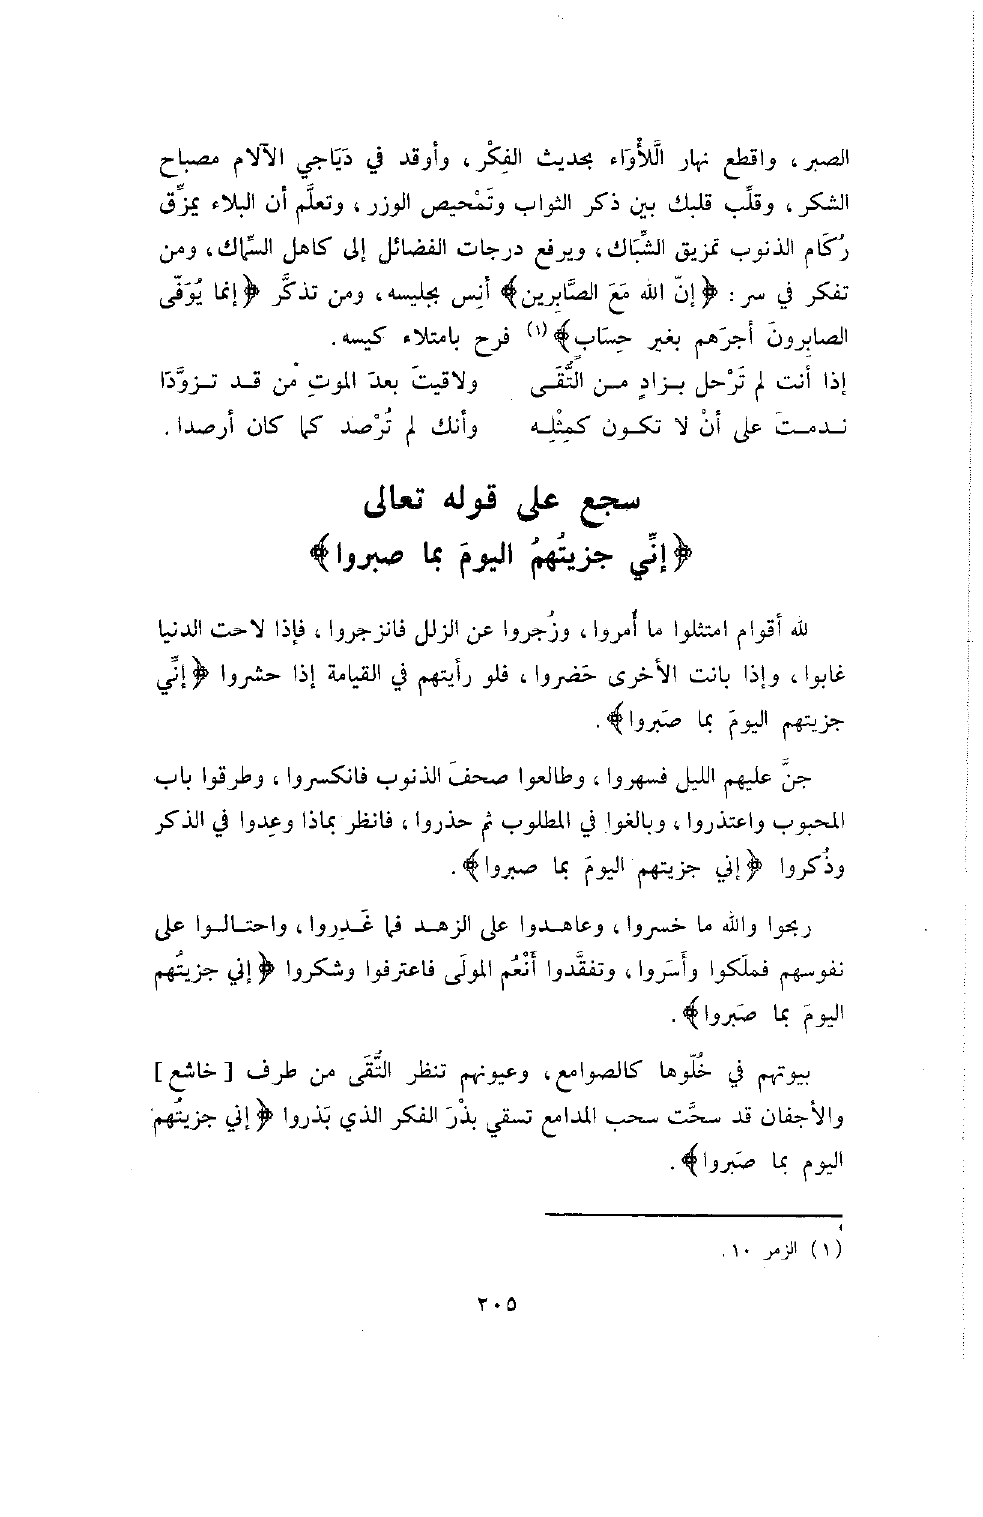 الصبر ، واقطع نهار الَّلأْوَاء بحديث الفِكْر ، وأوقد في دَيَاجي الآلام مصباح
الشكر ، وقلِّب قلبك بين ذكر الثواب وتَمْحيص الوزر ، وتعلَّم أن البلاء يمزِّق
رُكَام الذنوب تمزيق الشِّبَاك ، ويرفع درجات الفضائل إلى كاهل السِّماك ، ومن
تفكر في سر : ﴿ إنّ الله مَعَ الصَّابِرين﴾ أنِس بجليسه ، ومن تذكَّر ﴿ إنما يُوَفّى
الصابِرونَ أجرَهم بغير حِسَابٍ﴾(١) فرح بامتلاء كيسه .
إذا أنت لم تَرْحل بـزادٍ مـن التُّقَـى ولاقيتَ بعدَ الموتِ مْن قـد تـزوَّدَا
نـدمـتَ على أنْ لا تكـون كمِثْلِـه وأنك لم تُرْصد كما كان أرصدا .
سجع على قوله تعالى
﴿إنِّي جزيتُهمُ اليومَ بما صبروا﴾
لله أقوام امتثلوا ما أُمروا ، وزُجروا عن الزلل فانزجروا ، فإذا لاحت الدنيا
غابوا ، وإذا بانت الأخرى حَضروا ، فلو رأيتهم في القيامة إذا حشروا ﴿إنِّي
جزيتهم اليومَ بما صَبروا﴾ .
جنَّ عليهم الليل فسهروا ، وطالعوا صحفَ الذنوب فانكسروا ، وطرقوا باب
المحبوب واعتذروا ، وبالغوا في المطلوب ثم حذروا ، فانظر بماذا وعِدوا في الذكر
وذُكروا ﴿إني جزيتهم اليومَ بما صبروا﴾ .
ربحوا والله ما خسروا ، وعاهـدوا على الزهـد فما غَـدِروا ، واحتـالـوا على
نفوسهم فملَكوا وأَسَروا ، وتفقَّدوا أَنْعُم المولَى فاعترفوا وشكروا ﴿إني جزيتُهم
اليومَ بما صَبروا﴾ .
بيوتهم في خُلّوها كالصوامع ، وعيونهم تنظر التُّقَى من طرف [ خاشع ]
والأجفان قد سحَّت سحب المدامع تسقي بذْرَ الفكر الذي بَذروا ﴿ إني جزيتُهم
اليوم بما صَبروا﴾ .
(١) الزمر ١٠ .
٢٠٥